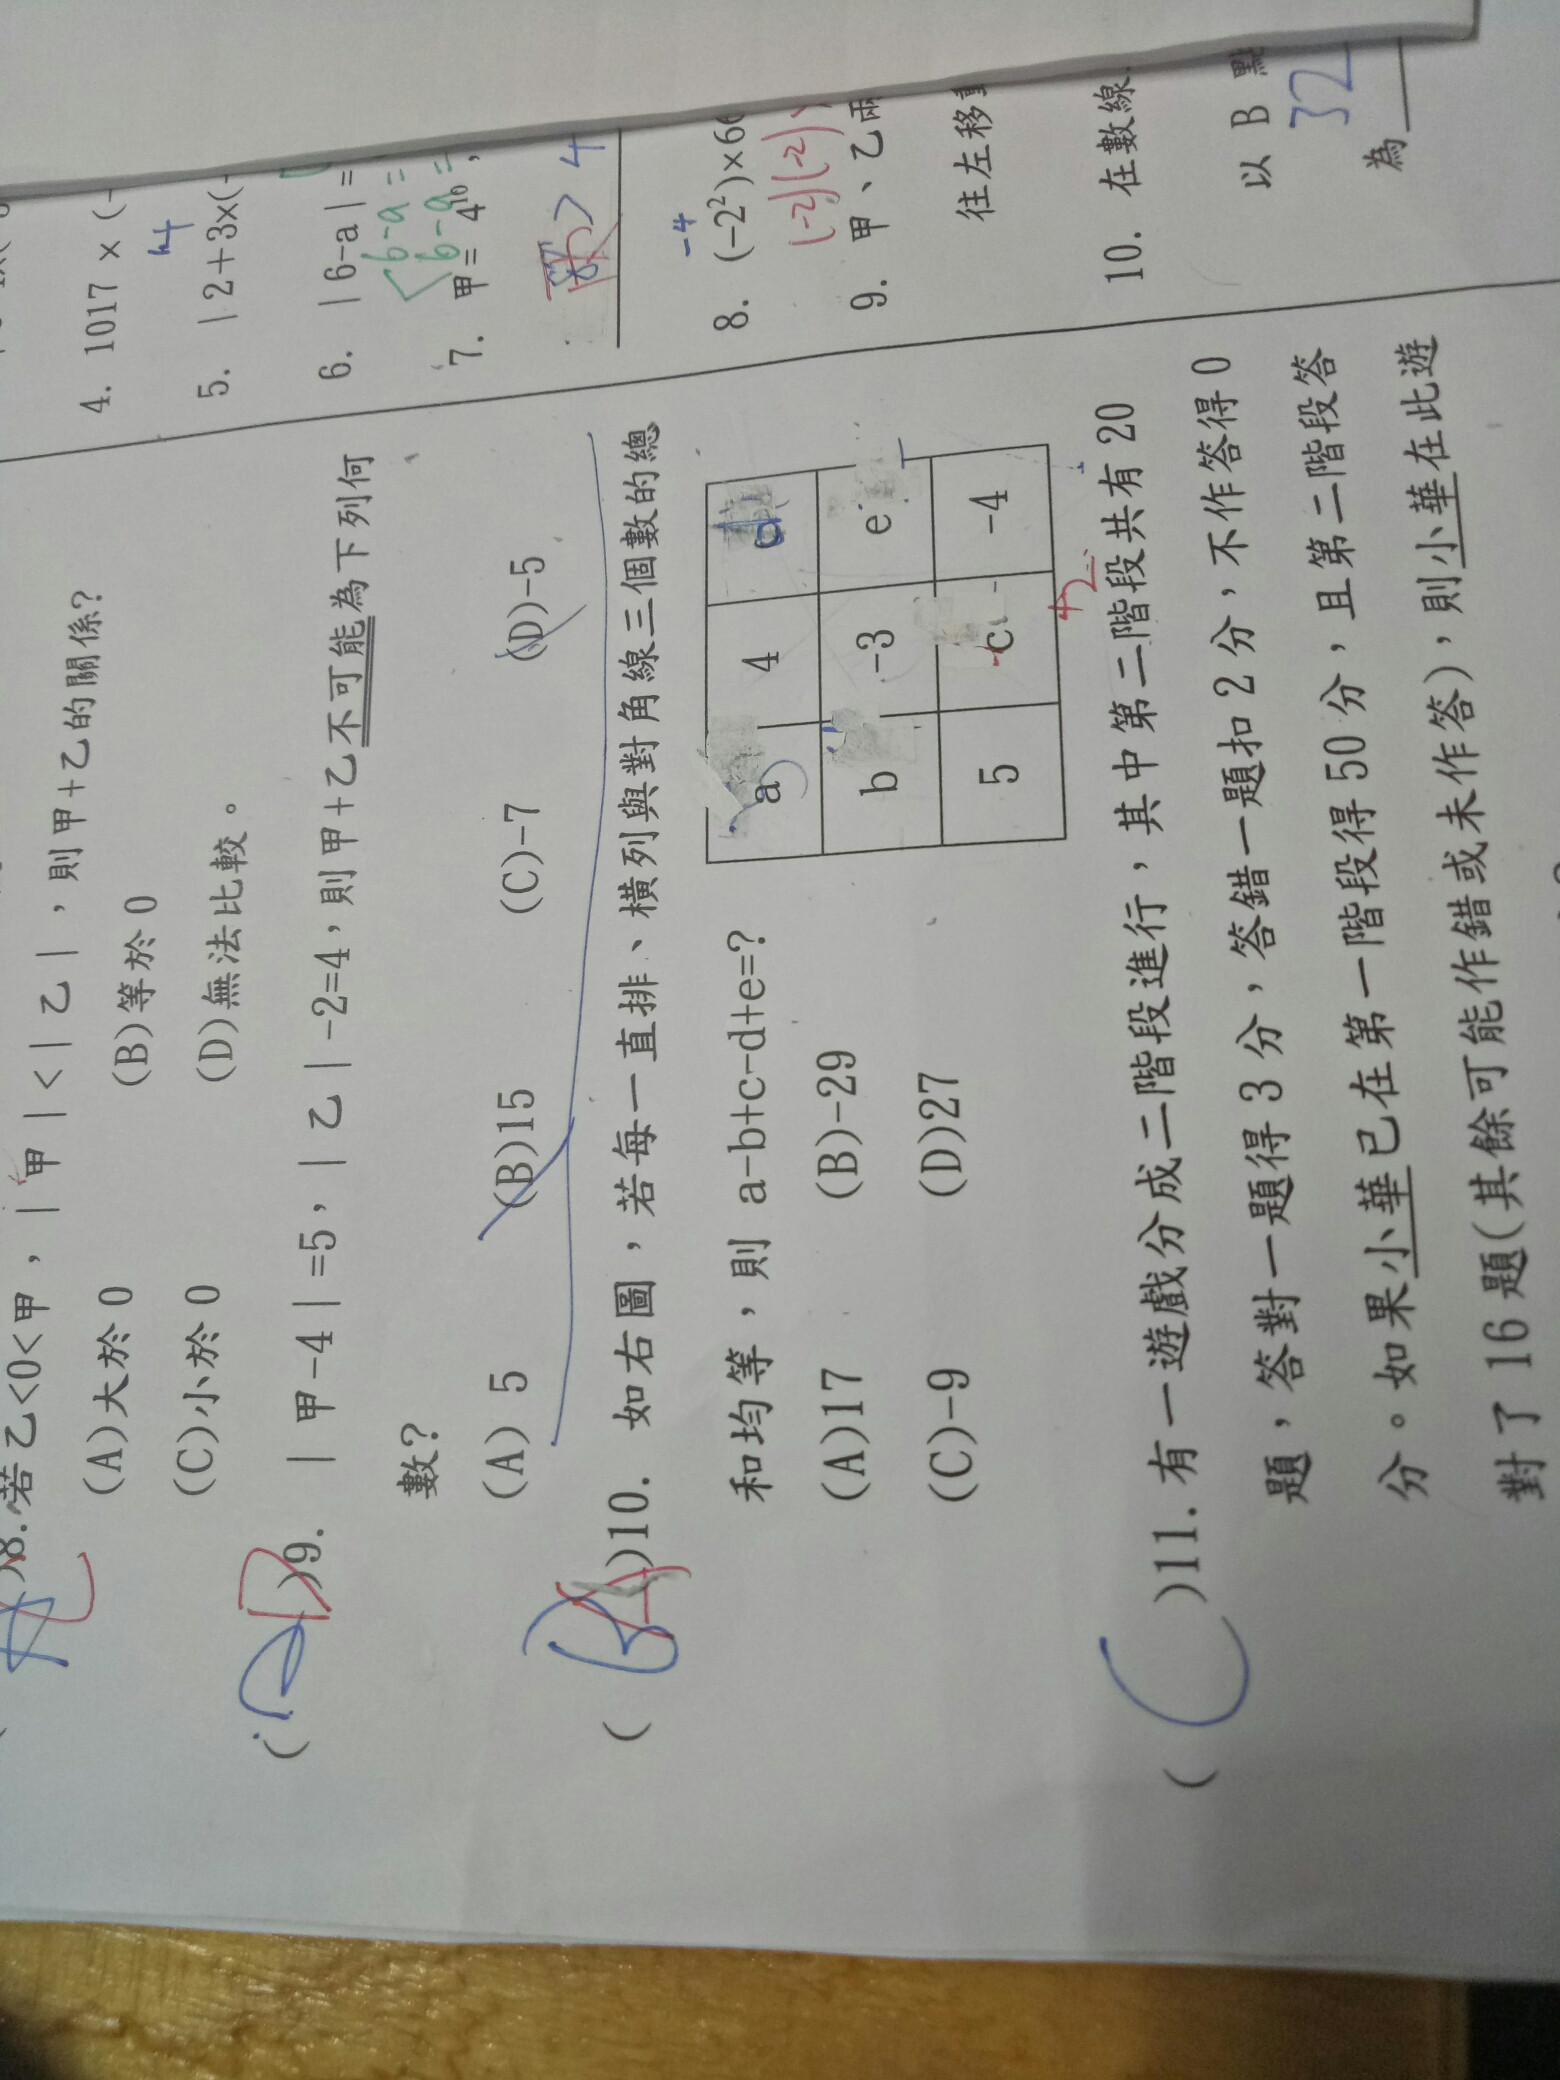 )8.若乙<0<甲,|甲|<|乙|,則甲+乙的關係?
(A)大於 0 (B)等於 0
(C)小於 0 (D)無法比較。
( D D )9. |甲-4|=5,|乙|-2=4,則甲+乙不可能為下列何
數?
(A) 5 (B)15 (C)-7 (D)-5
( B A )10. 如右圖,若每一直排、橫列與對角線三個數的總
和均等,則 a-b+c-d+e=?
(A)17 (B)-29
(C)-9 (D)27
a 4 d
b -3 e
5 c -4
( C )11. 有一遊戲分成二階段進行,其中第二階段共有 20
題,答對一題得 3 分,答錯一題扣 2 分,不作答得 0
分。如果小華已在第一階段得 50 分,且第二階段答
對了 16 題(其餘可能作錯或未作答),則小華在此遊
4. 1017 × (-
4
5. |2+3×(-
6. |6-a|=
6-a=
6-a=
7. 甲= 4¹⁰,
> 4
-4
8. (-2²)×66
(-2)(-2)
9. 甲、乙兩
往左移動
10. 在數線
以 B 點
32
為